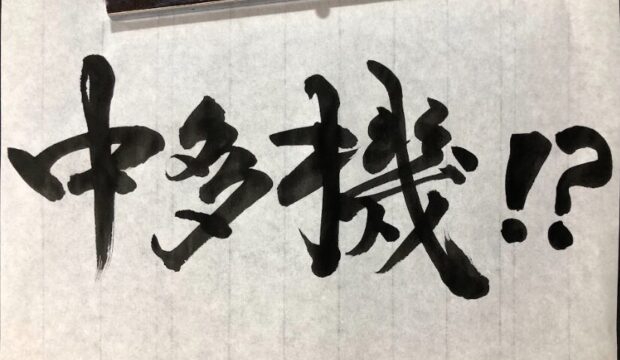 中多機!?